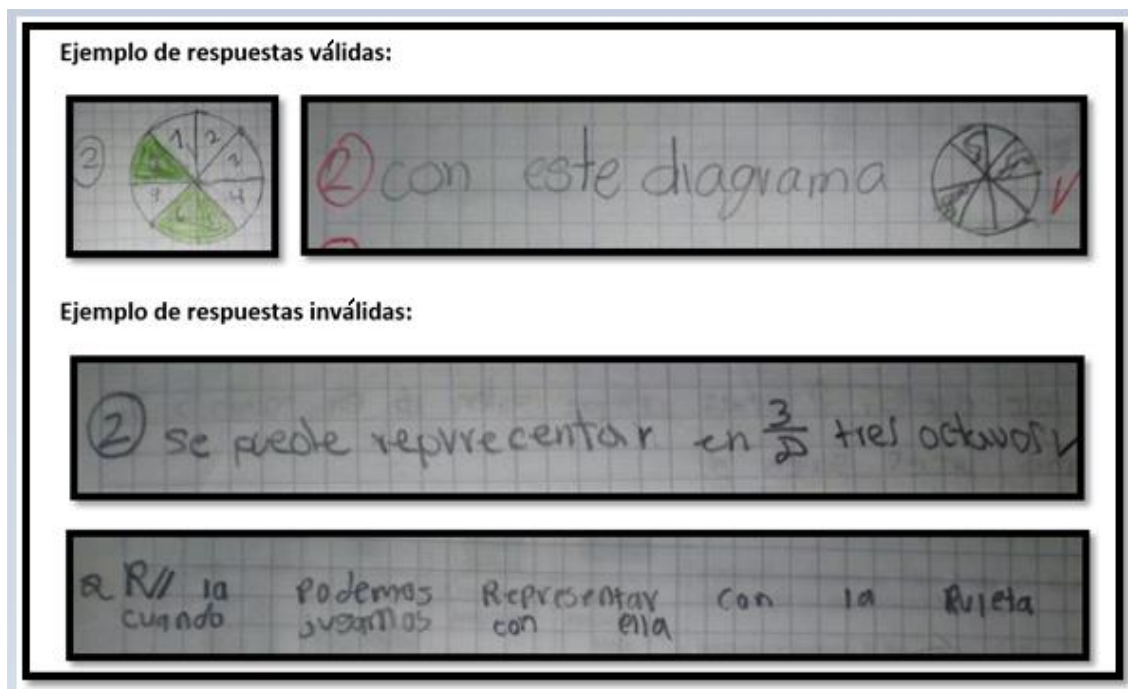 Ejemplo de respuestas válidas:
2
1 2
3
4
② con este diagrama
Ejemplo de respuestas inválidas:
② se puede reprrecentar en 3/8 tres octavos
2 R// la podemos Representar con la Ruleta
cuando jugamos con ella